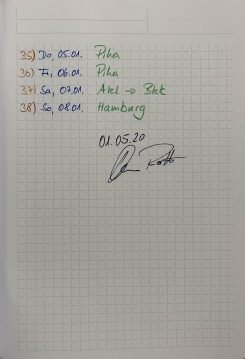 35) Do, 05.01. Piha
36) Fr, 06.01. Piha
37) Sa, 07.01. Akl → Bkk
38) So, 08.01. Hamburg
01.05.20